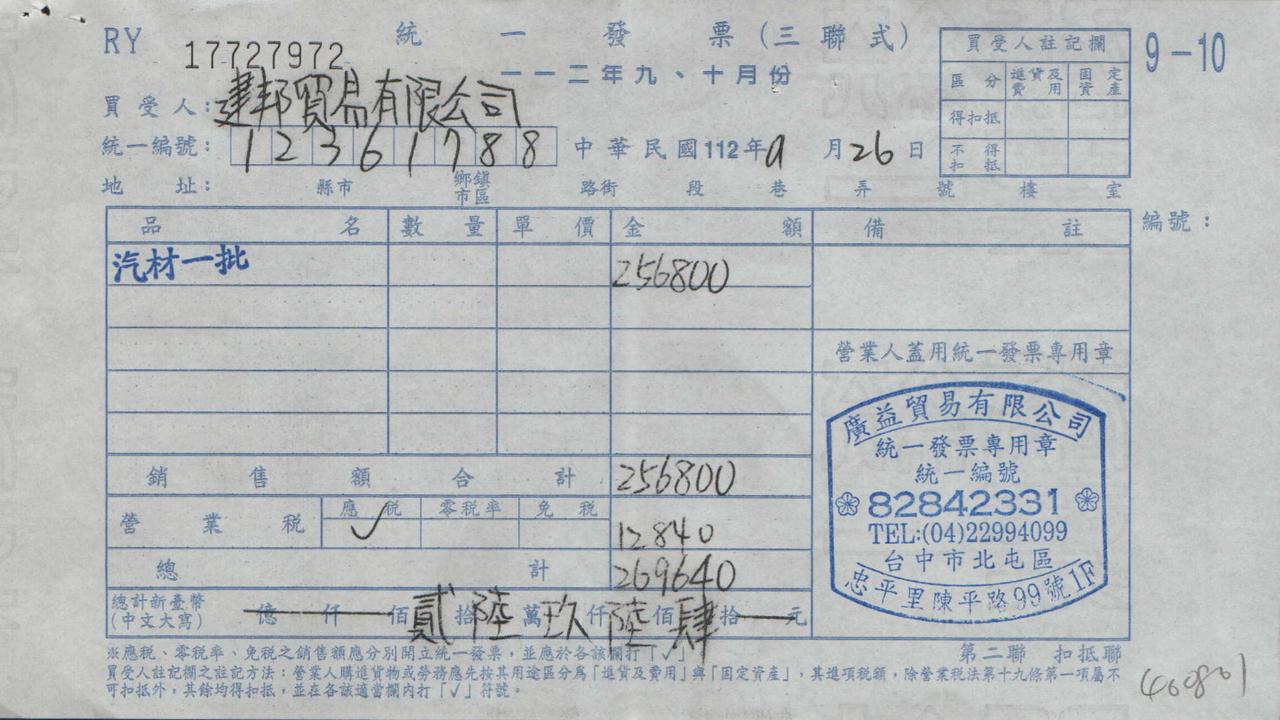 RY 17727972
統一發票(三聯式)
一一二年九、十月份
9-10
買受人註記欄
區分 進貨及費用 固定資產
得扣抵
不得扣抵
買受人:建邦貿易有限公司
統一編號:12361788
中華民國112年9月26日
地址: 縣市 鄉鎮市區 路街 段 巷 弄 號 樓 室
品名 數量 單價 金額 備註
編號:
汽材一批 256800
營業人蓋用統一發票專用章
銷售額合計 256800
營業稅 應稅 ✓ 零稅率 免稅 12840
總計 269640
總計新臺幣(中文大寫) 億仟佰貳拾陸萬玖仟陸佰肆拾元
廣益貿易有限公司
統一發票專用章
統一編號
82842331
TEL:(04)22994099
台中市北屯區
忠平里陳平路99號1F
※應稅、零稅率、免稅之銷售額應分別開立統一發票,並應於各該欄打「✓」。
第二聯 扣抵聯
買受人註記欄之註記方法:營業人購進貨物或勞務應先按其用途區分為「進貨及費用」與「固定資產」,其進項稅額,除營業稅法第十九條第一項屬不
可扣抵外,其餘均得扣抵,並在各該適當欄內打「✓」符號。